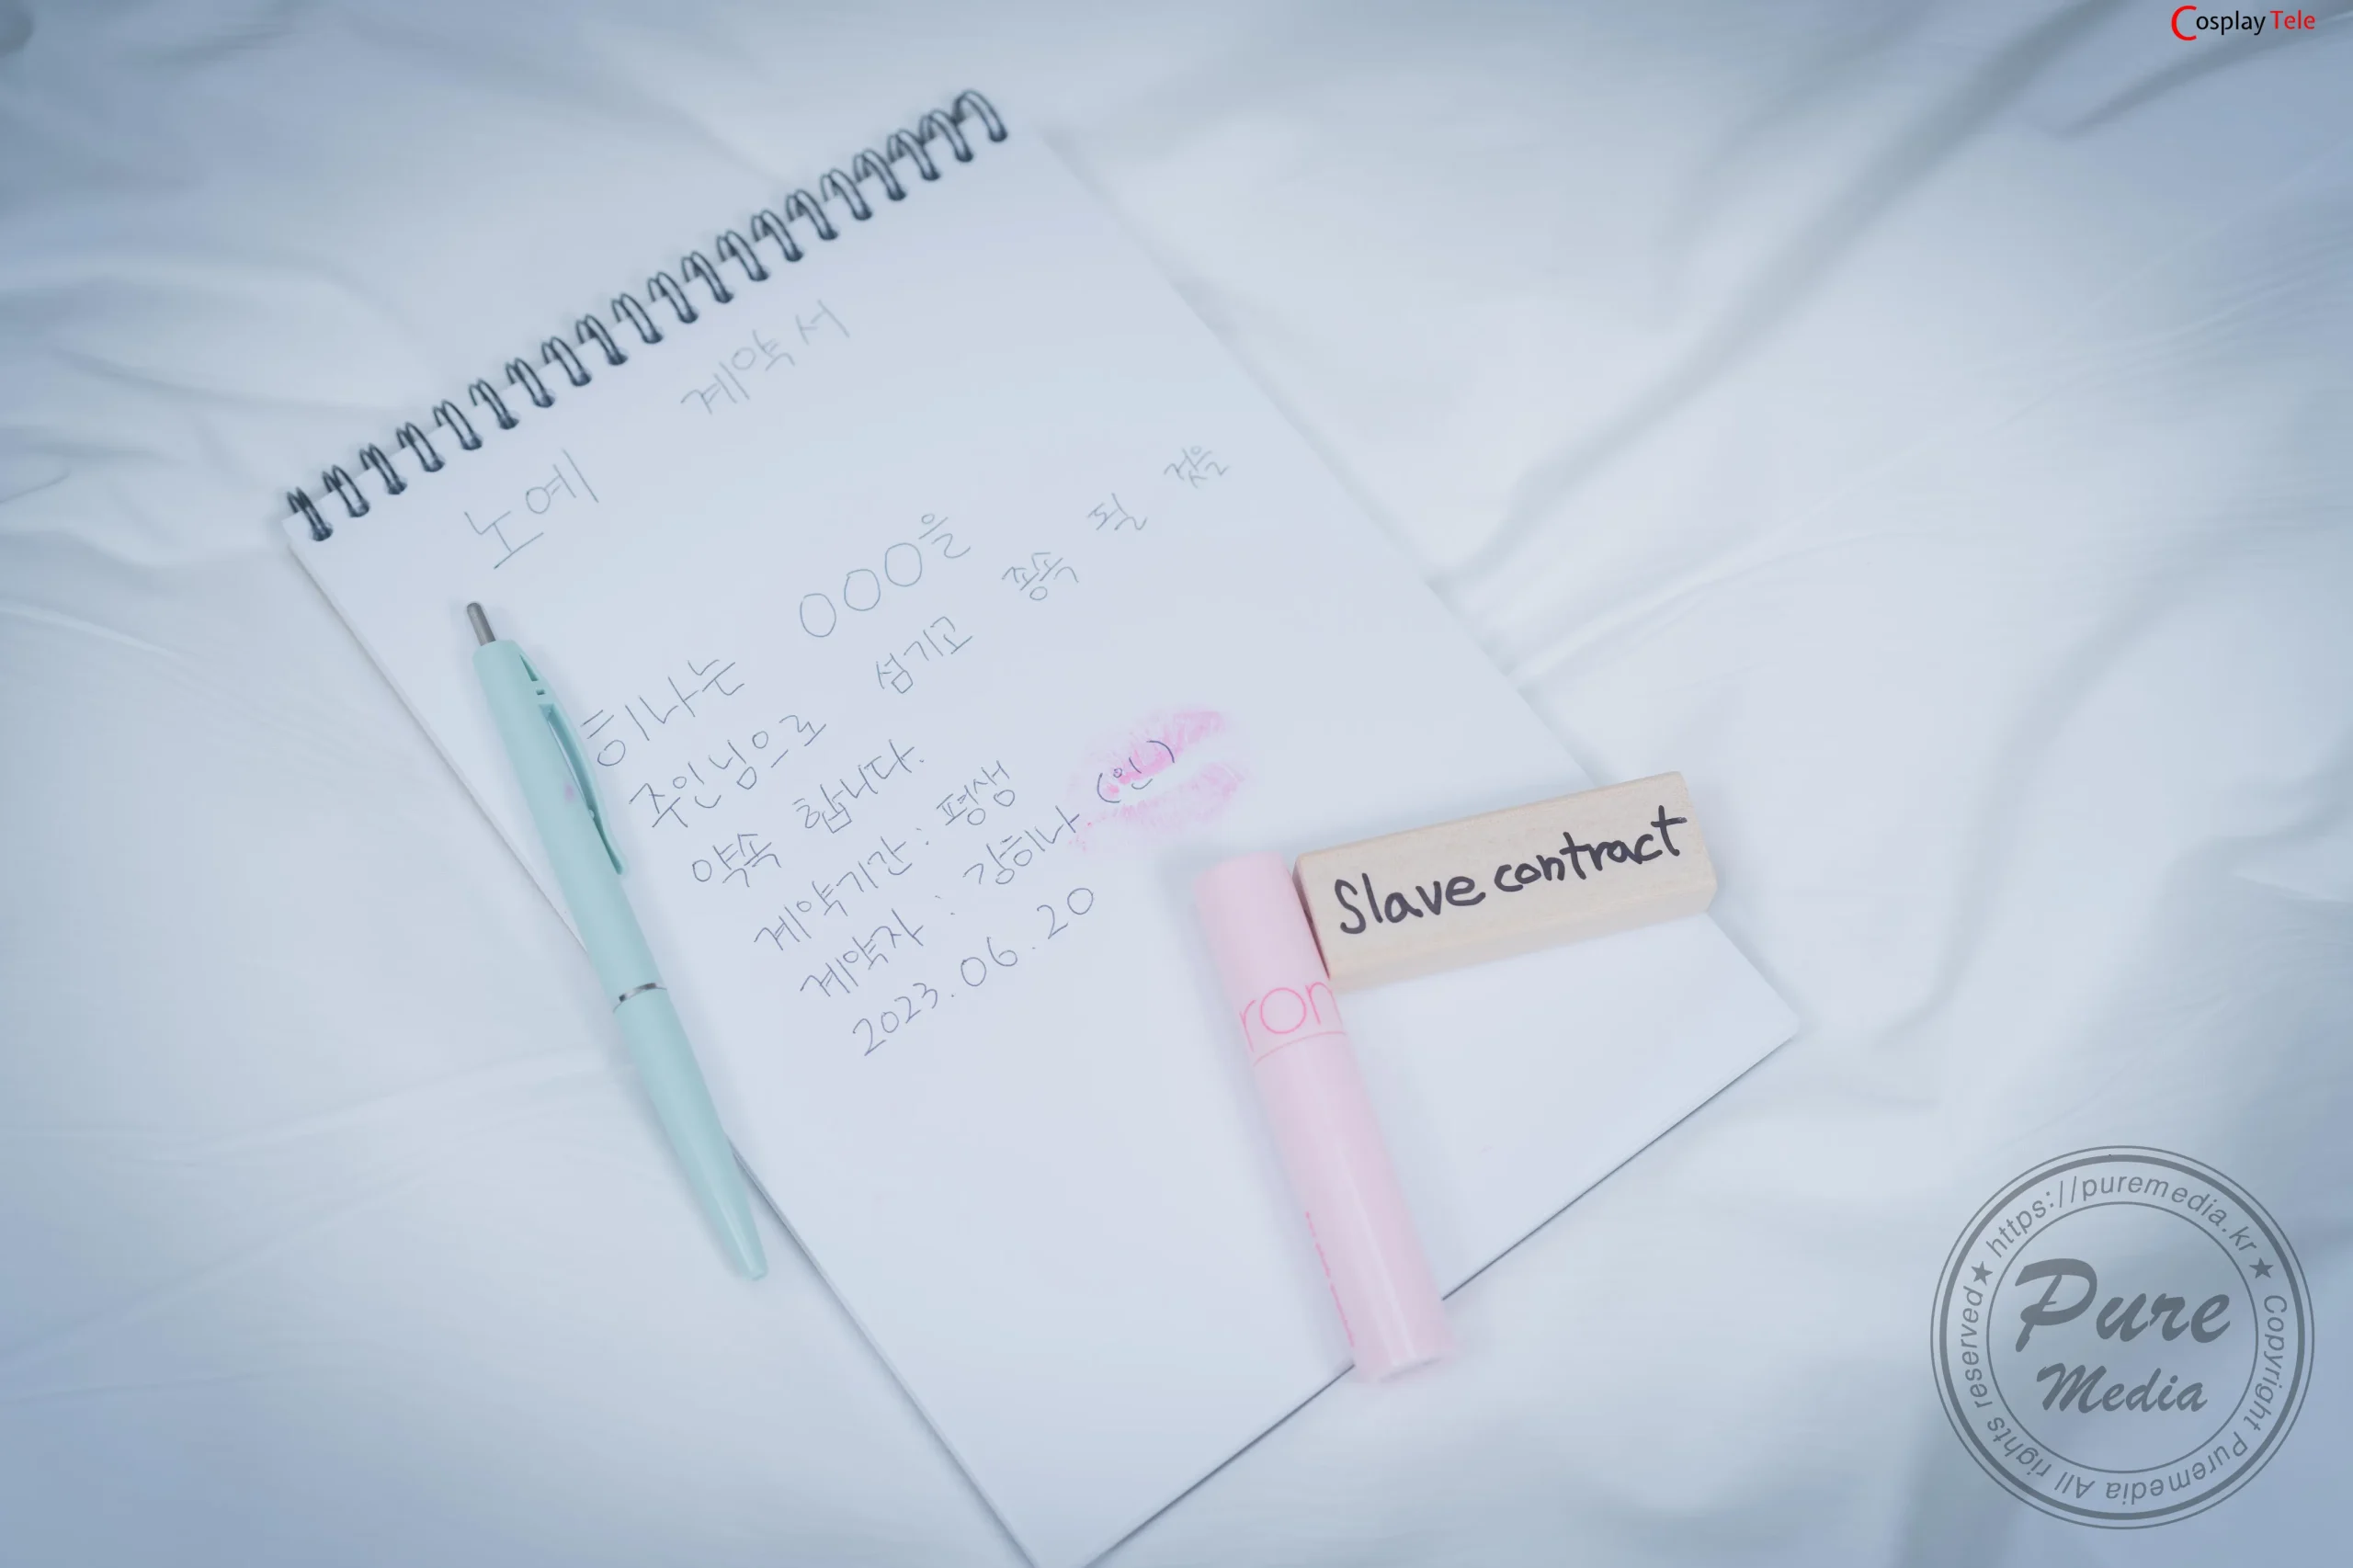 Cosplay Tele
노예 계약서
히나는 OOO을
주인님으로 섬기고 종속 될 것을
약속 합니다.
계약기간 : 평생
계약자 : 강히나 (인)
2023.06.20
Slave contract
rom
★ https://puremedia.kr ★ Copyright Puremedia All rights reserved
Pure
Media